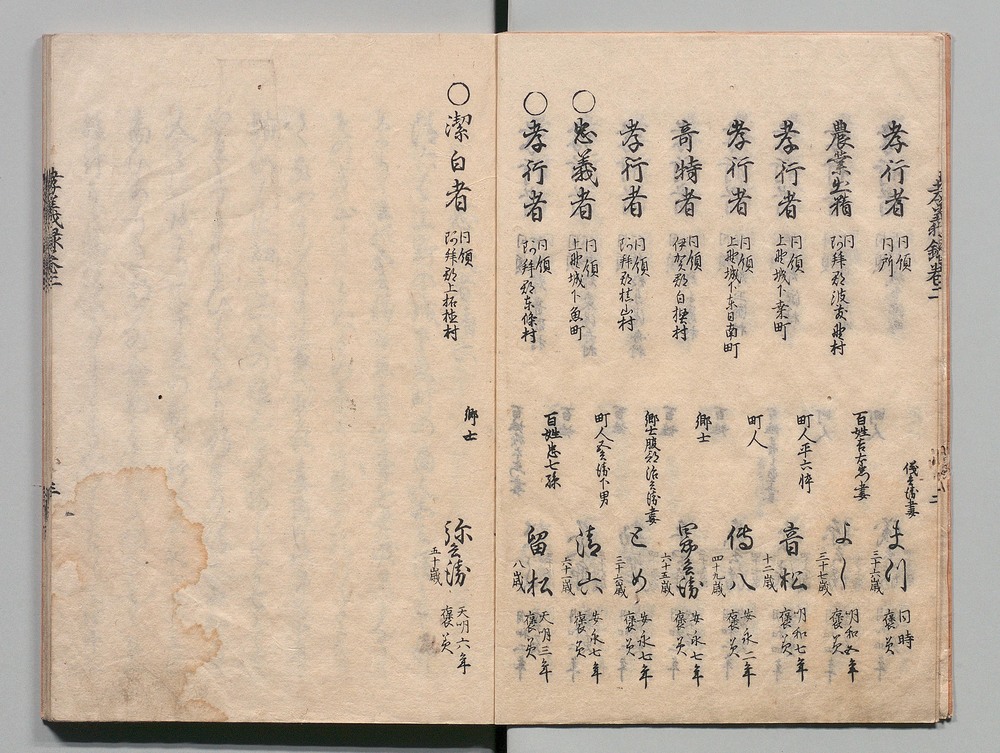 孝義録巻二
孝行者 同領 同所 儀兵衛妻 まつ 三十六歳 同時 褒美
農業出精 同 阿拝郡波敷野村 百姓吉右衛門妻 よし 三十七歳 明和 年 褒美
孝行者 同領 上野城下 町 町人平六忰 音松 十二歳 明和七年 褒美
孝行者 同領 上野城下東日南町 町人 傳八 四十九歳 安永二年 褒美
奇特者 伊賀郡白樫村 郷士 六十五歳 安永七年 褒美
孝行者 同領 阿拝郡 山村 郷士服部治兵衛妻 とめ 三十六歳 安永七年 褒美
○忠義者 同領 上野城下魚町 町人 兵衛下男 清六 六十二歳 安永七年 褒美
○孝行者 同領 阿拝郡東條村 百姓忠七孫 留松 八歳 天明三年 褒美
○潔白者 同領 阿拝郡上柘植村 郷士 弥兵衛 五十歳 天明六年 褒美
孝義録巻二
三